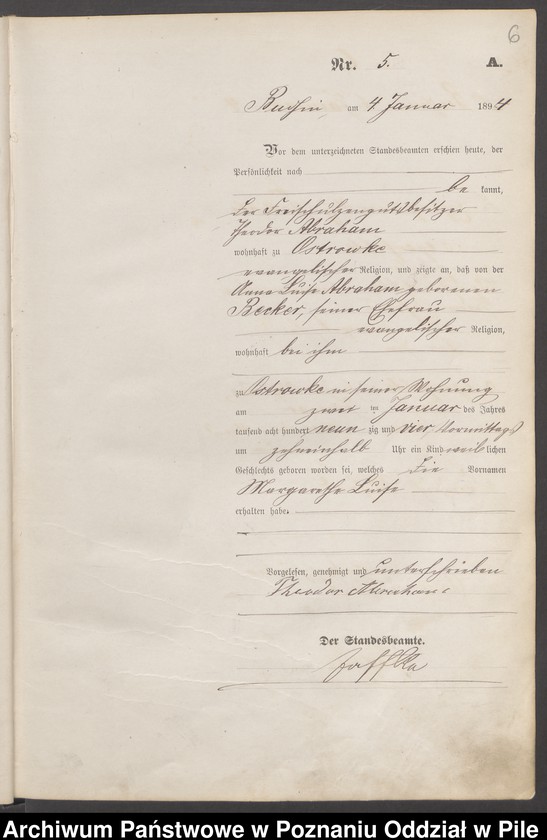 6
Nr. 5. A.
am 4 Januar 1894
Vor dem unterzeichneten Standesbeamten erschien heute, der
Persönlichkeit nach
be kannt,
der Freischulzengutsbesitzer
Theodor Abraham
wohnhaft zu Ostrowke
evangelischer Religion, und zeigte an, daß von der
Anna Luise Abraham geborenen
Becker, seiner Ehefrau
evangelischer Religion,
wohnhaft bei ihm
zu Ostrowke in seiner Wohnung
am zwei ten Januar des Jahres
tausend acht hundert neun zig und vier Vormittags
um zehneinhalb Uhr ein Kind weib lichen
Geschlechts geboren worden sei, welches die Vornamen
Margarethe Luise
erhalten habe.
Vorgelesen, genehmigt und unterschrieben
Theodor Abraham
Der Standesbeamte.
Archiwum Państwowe w Poznaniu Oddział w Pile